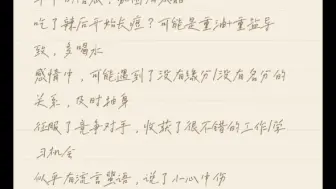 吃了辣后开始长痘？可能是重油重盐导
致，多喝水
感情中，可能遇到了没有缘分/没有名分的
关系，及时抽身
征服了竞争对手，收获了很不错的工作/学
习机会
似乎有流言蜚语，说了小心中伤